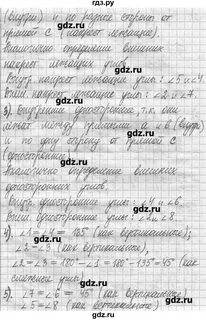 (внутри) и по разные стороны от
прямой С (накрест лежащие).
Аналогично определение внешних
накрест лежащих углов.
Внутр. накрест лежащие углы: ∠5 и ∠4
Внешн. накрест лежащие углы: ∠2 и ∠7.
3). Внутренние односторонние, т.к. они
лежат между прямыми а и b (внутри)
и по одну сторону от прямой С
(односторонние).
Аналогично определение внешних
односторонних углов.
Внутр. односторонние углы: ∠4 и ∠6.
Внешн. односторонние углы: ∠2 и ∠8.
4). ∠1 = ∠4 = 135° (как вертикальные);
∠2 = ∠3 (как вертикальные),
∠2 = ∠3 = 180° - ∠1 = 180° - 135° = 45° (как
смежные углы)
5). ∠7 = ∠6 = 45° (как вертикальные)
∠5 = ∠8 (как вертикальные)
gdz.ru